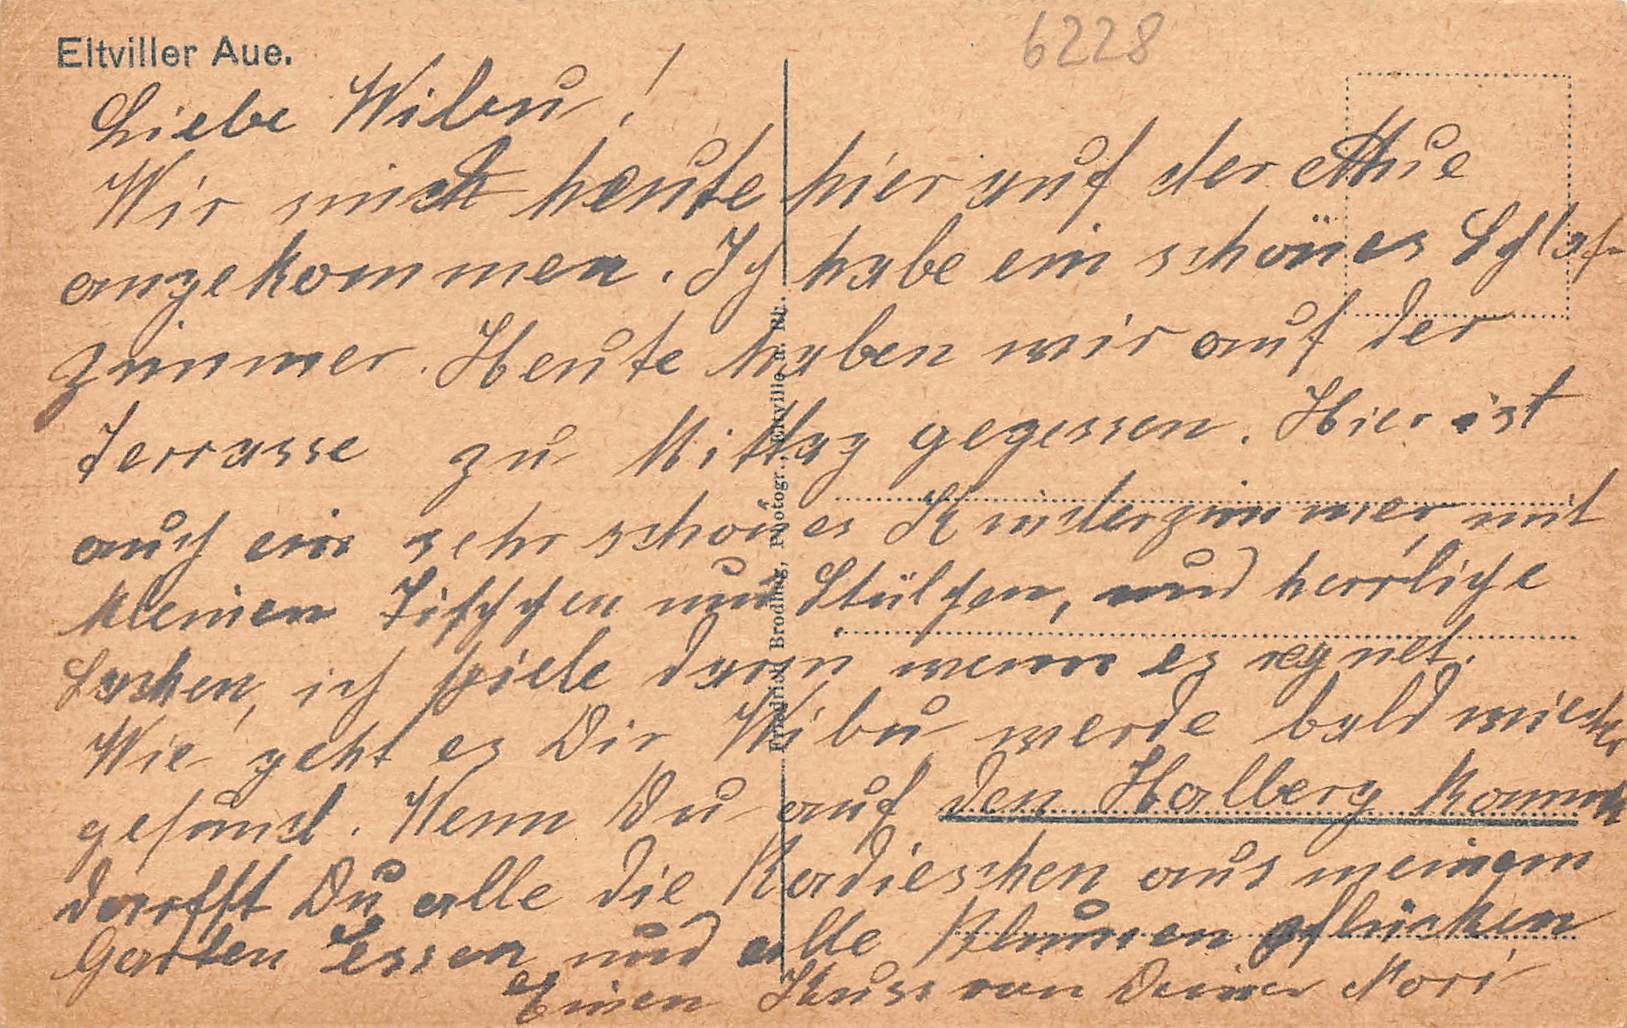 Eltviller Aue.
6228
Liebe Wibu!
Wir sind heute hier auf der Aue
angekommen. Ich habe ein schönes Schlaf-
zimmer. Heute haben wir auf der
Terrasse zu Mittag gegessen. Hier ist
auch ein sehr schönes Kinderzimmer, mit
kleinen Tischchen und Stülchen, und herrliche
Sachen, ich spiele darin wenn es regnet.
Wie geht es Dir Wibu werde bald wieder
gesund. Wenn Du auf den Halberg kommst
darfft Du alle die Radieschen aus meinem
Garten Essen und alle Blumen pflücken
Einen Kuss von Deiner Nori
Friedrich Brodhag, Photogr., Eltville a. Rh.